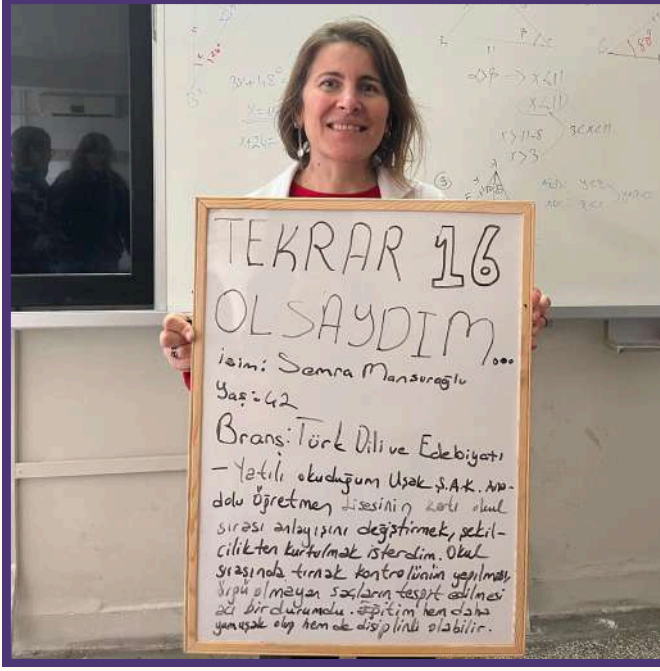 TEKRAR 16
OLSAYDIM...
isim: Semra Mansuroğlu
Yaş: 42
Branş: Türk Dili ve Edebiyatı
- Yatılı okuduğum Uşak Ş.A.K. Ana-
dolu Öğretmen Lisesinin katı okul
sırası anlayışını değiştirmek, şekil-
cilikten kurtulmak isterdim. Okul
sırasında tırnak kontrolünün yapılması,
örgü olmayan saçların tespit edilmesi
acı bir durumdu. Eğitim hem daha
yumuşak olup hem de disiplinli olabilir.
3x+48°
x+24=
α>β => x<11
x<11
x>11-8
x>3
3<x<11